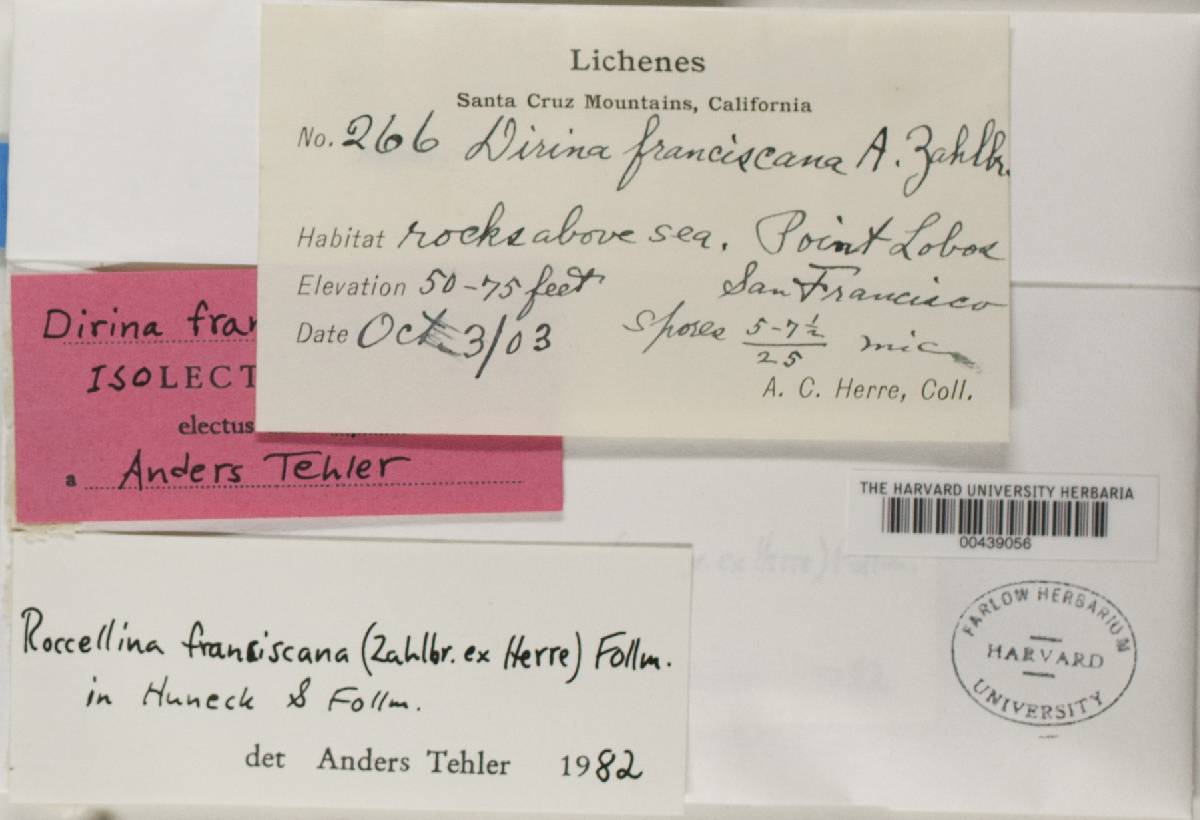 Lichenes
Santa Cruz Mountains, California
No. 266 Dirina franciscana A. Zahlbr.
Habitat rocks above sea. Point Lobos
Elevation 50-75 feet San Francisco
Date Oct. 3/03 Spores 5-7½/25 mic
A. C. Herre, Coll.
Dirina fran
ISOLECT
electus
a Anders Tehler
THE HARVARD UNIVERSITY HERBARIA
00439056
FARLOW HERBARIUM
HARVARD
UNIVERSITY
Roccellina franciscana (Zahlbr. ex Herre) Follm.
in Huneck & Follm.
det Anders Tehler 1982